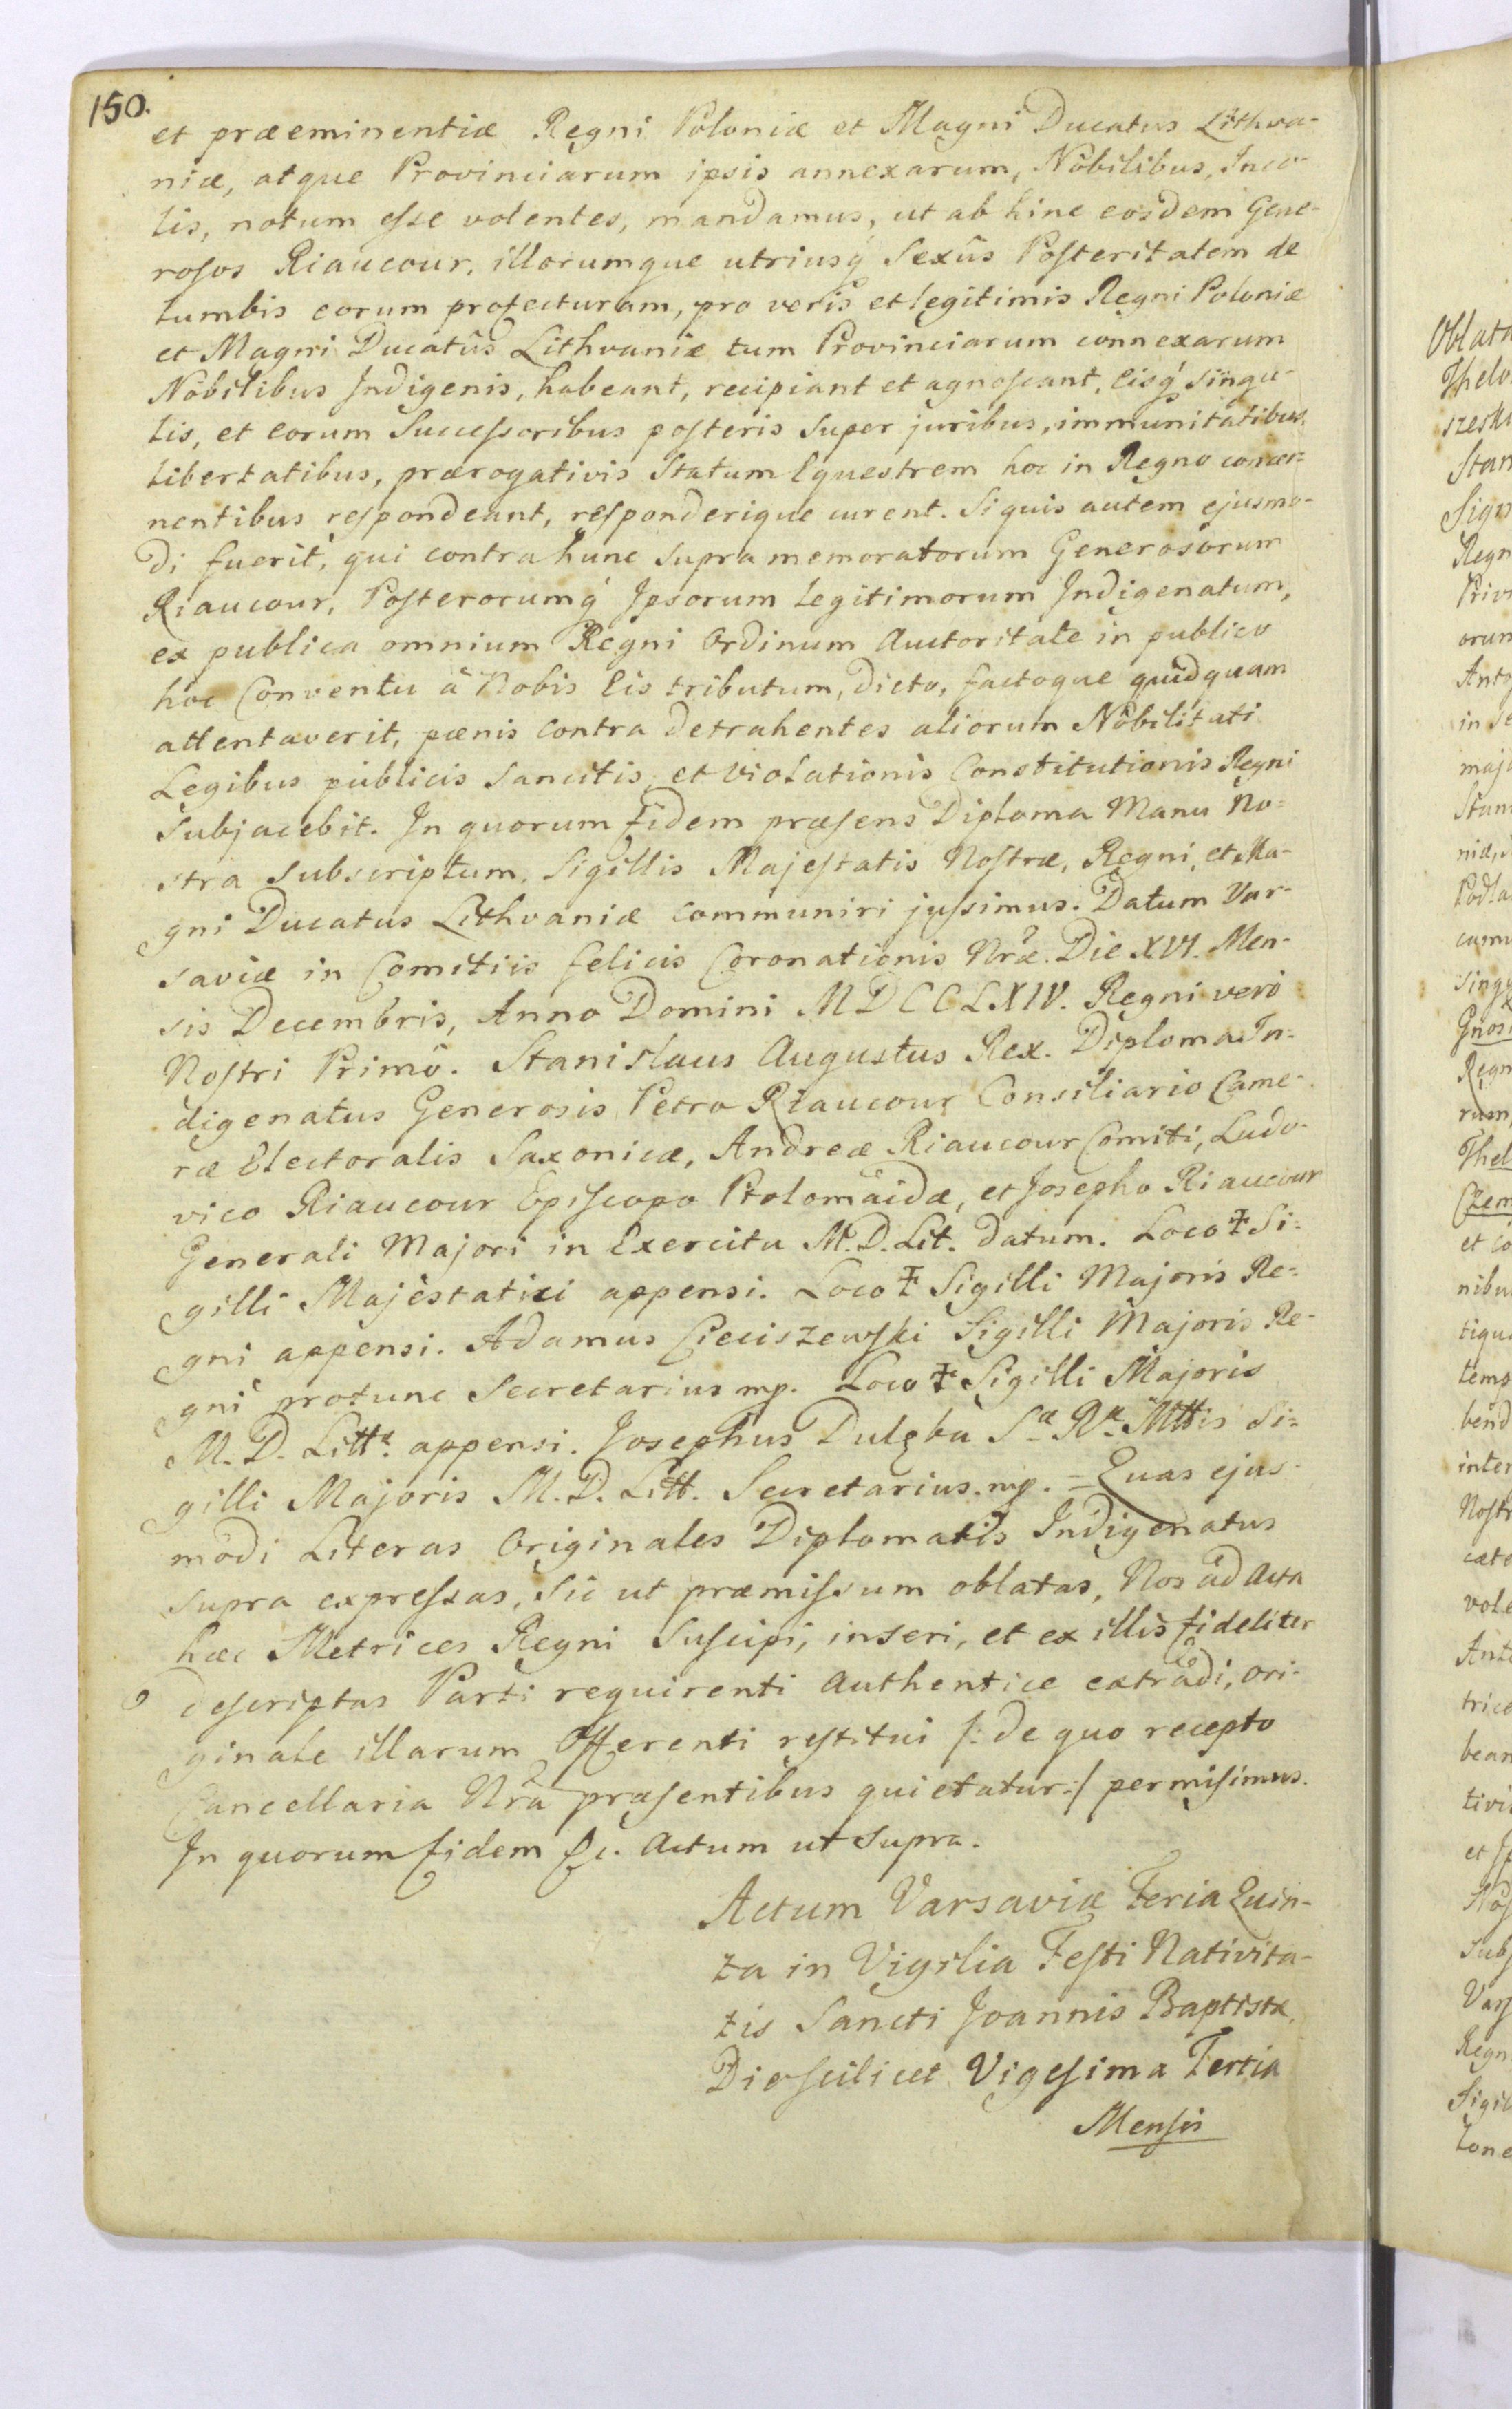 150.
et præeminentiæ Regni Poloniæ et Magni Ducatus Lithva-
niæ, atque Provinciarum ipsis annexarum, Nobilibus, Inco-
lis, notum esse volentes, mandamus, ut ab hinc eosdem Gene-
rosos Riaucour, illorumque utriusq́ Sexûs Posteritatem de
lumbis eorum profecturam, pro veris et legitimis Regni Poloniæ
et Magni Ducatûs Lithvaniæ tum Provinciarum connexarum
Nobilibus Indigenis, habeant, recipiant et agnoscant, eisq́ singu-
lis, et eorum Successoribus posteris super juribus, immunitatibus,
libertatibus, prærogativis Statum Equestrem hoc in Regno concer=
nentibus respondeant, responderique curent. Siquis autem ejusmo-
di fuerit, qui contra hunc supra memoratorum Generosorum
Riaucour, Posterorumq́ Ipsorum legitimorum Indigenatum,
ex publica omnium Regni Ordinum Auctoritate in publico
hoc Conventu â Nobis Eis tributum, dicto, factoque quidquam
attentaverit, pœnis contra detrahentes aliorum Nobilitati
Legibus publicis sancitis, et Violationis Constitutionis Regni
subjacebit. In quorum fidem præsens Diploma Manu No=
stra subscriptum, Sigillis Majestatis Nostræ, Regni, et Ma-
gni Ducatus Lithvaniæ communiri jussimus. Datum Var-
saviæ in Comitiis felicis Coronationis Nræ. Die XVI. Men-
sis Decembris, Anno Domini MDCCLXIV. Regni verò
Nostri Primô. Stanislaus Augustus Rex. Diploma In-
digenatus Generosis Petro Riaucour Consiliario Came-
ræ Electoralis Saxonicæ, Andreæ Riaucour Comiti, Ludo-
vico Riaucour Episcopo Ptolomäidæ, et Josepho Riaucour
Generali Majori in Exercitu M. D. Lit. datum. Loco ‡ Si=
gilli Majestatici appensi. Loco ‡ Sigilli Majoris Re-
gni appensi. Adamus Cieciszewski Sigilli Majoris Re-
gni protunc Secretarius mp. Loco ‡ Sigilli Majoris
M. D. Litt. appensi. Josephus Dulęba S. R. Mttis Si=
gilli Majoris M. D. Litt. Secretarius. mp. = Quas ejus-
modi Literas Originales Diplomatis Indigenatus
supra expressas, sic ut præmissum oblatas, Nos ad Acta
hæc Metrices Regni suscipi, inseri, et ex illis fideliter
descriptas Parti requirenti authentice extradi, ori-
ginale illarum Offerenti restitui /: de quo recepto
Cancellaria Nrâ præsentibus quietatur :/ permisimus.
In quorum fidem &c. Actum ut supra.
Actum Varsaviæ Feria Quin-
ta in Vigilia Festi Nativita-
tis Sancti Joannis Baptistæ,
Die scilicet Vigesima Tertia
Mensis
Oblata